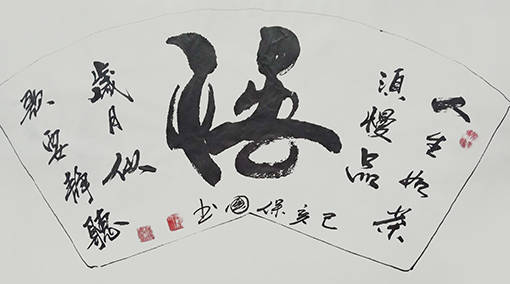 悟
人生如茶
須慢品
歲月似
歌要靜聽
己亥保國书